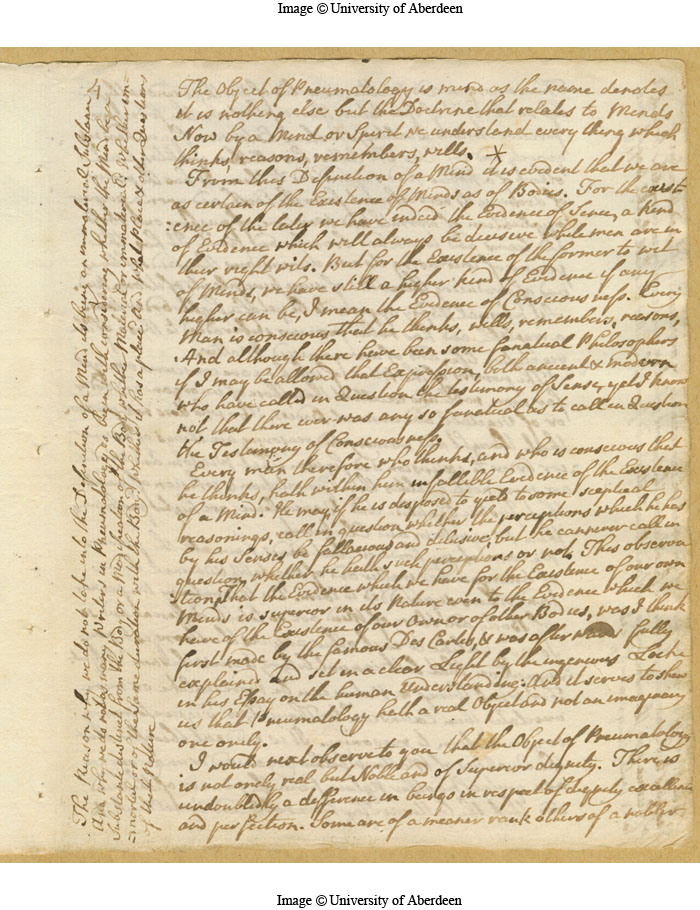 Image © University of Aberdeen
4
The Object of Pneumatology is mind as the name denotes
it is nothing else but the Doctrine that relates to Minds
Now by a Mind or Spirit we understand every thing which
thinks, reasons, remembers, wills. *
From this Definition of a Mind it is evident that we are
as certain of the Existence of Minds as of Bodies. For the exist
:ence of the later we have indeed the Evidence of Sense, a Kind
of Evidence which will always be decisive while men are in
their right wits. But for the Existence of the former to wit
of Minds, we have still a higher Kind of Evidence if any
higher can be, I mean the Evidence of Consciousness. Every
Man is conscious that he thinks, wills, remembers, reasons,
And although there have been some fanatical Philosophers
if I may be allowed that Expression, both ancient & modern
who have called in Question the testimony of Sense, yet I know
not that there ever was any so fanatical as to call in Question
the Testamony of Consciousness.
Every man therefore who thinks, and who is conscious that
he thinks, hath within him infallible Evidence of the Existence
of a Mind. He may if he is disposed to yield to some sceptical
reasonings, call in question whether the perceptions which he has
by his Senses be fallacious and delusive, but he can never call in
question whether he hath such perceptions or not. This observa
tion, that the Evidence which we have for the Existence of our own
Minds is superior in its Nature even to the Evidence which we
have of the Existence of our Own or of other Bodies, was I think
first made by the famous Des Cartes, & was after wards fully
explained and set in a clear Light by the ingenious Locke
in his Essay on the human Understanding. And it serves to shew
us that Pneumatology hath a real Object and not an imaginary
one onely.
I would next observe to you that the Object of Pneumatology
is not onely real but Noble and of Superior dignity. There is
undoubtedly a difference in beings in respect of dignity excellence
and perfection. Some are of a meaner rank others of a nobler
The Reason why we do not take into the Definition of a Mind its being an immaterial Substance
And why we do not as many writers in Pneumatology do begin with considering whether the Mind be a
Substance distinct from the Body or a Modification of the Body, whether Material or immaterial, whether im
:mortal or of the same duration with the Body, whether it has a place and what place & other Questions
of that Nature
Image © University of Aberdeen